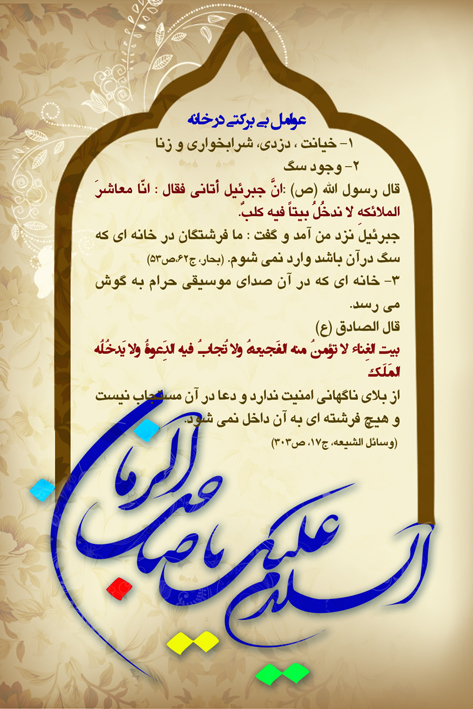 عوامل بی برکتی در خانه
۱- خیانت ، دزدی، شرابخواری و زنا
۲- وجود سگ
قال رسول الله (ص) :انَّ جبرئیل أتانی فقال : انّا معاشرَ
الملائکهِ لا ندخُلُ بیتاً فیه کلبٌ.
جبرئیل نزد من آمد و گفت : ما فرشتگان در خانه ای که
سگ درآن باشد وارد نمی شوم. (بحار، ج۶۲،ص۵۳)
۳- خانه ای که در آن صدای موسیقی حرام به گوش
می رسد.
قال الصادق (ع)
بیت الغِناء لا تؤمنُ منه الفَجیعهُ ولا تُجابُ فیه الدِعوهُ ولا یَدخُلُه
المَلَکَ
از بلای ناگهانی امنیت ندارد و دعا در آن مستجاب نیست
و هیچ فرشته ای به آن داخل نمی شود.
(وسائل الشیعه، ج۱۷، ص۳۰۳)
السلام علیک یا صاحب الزمان